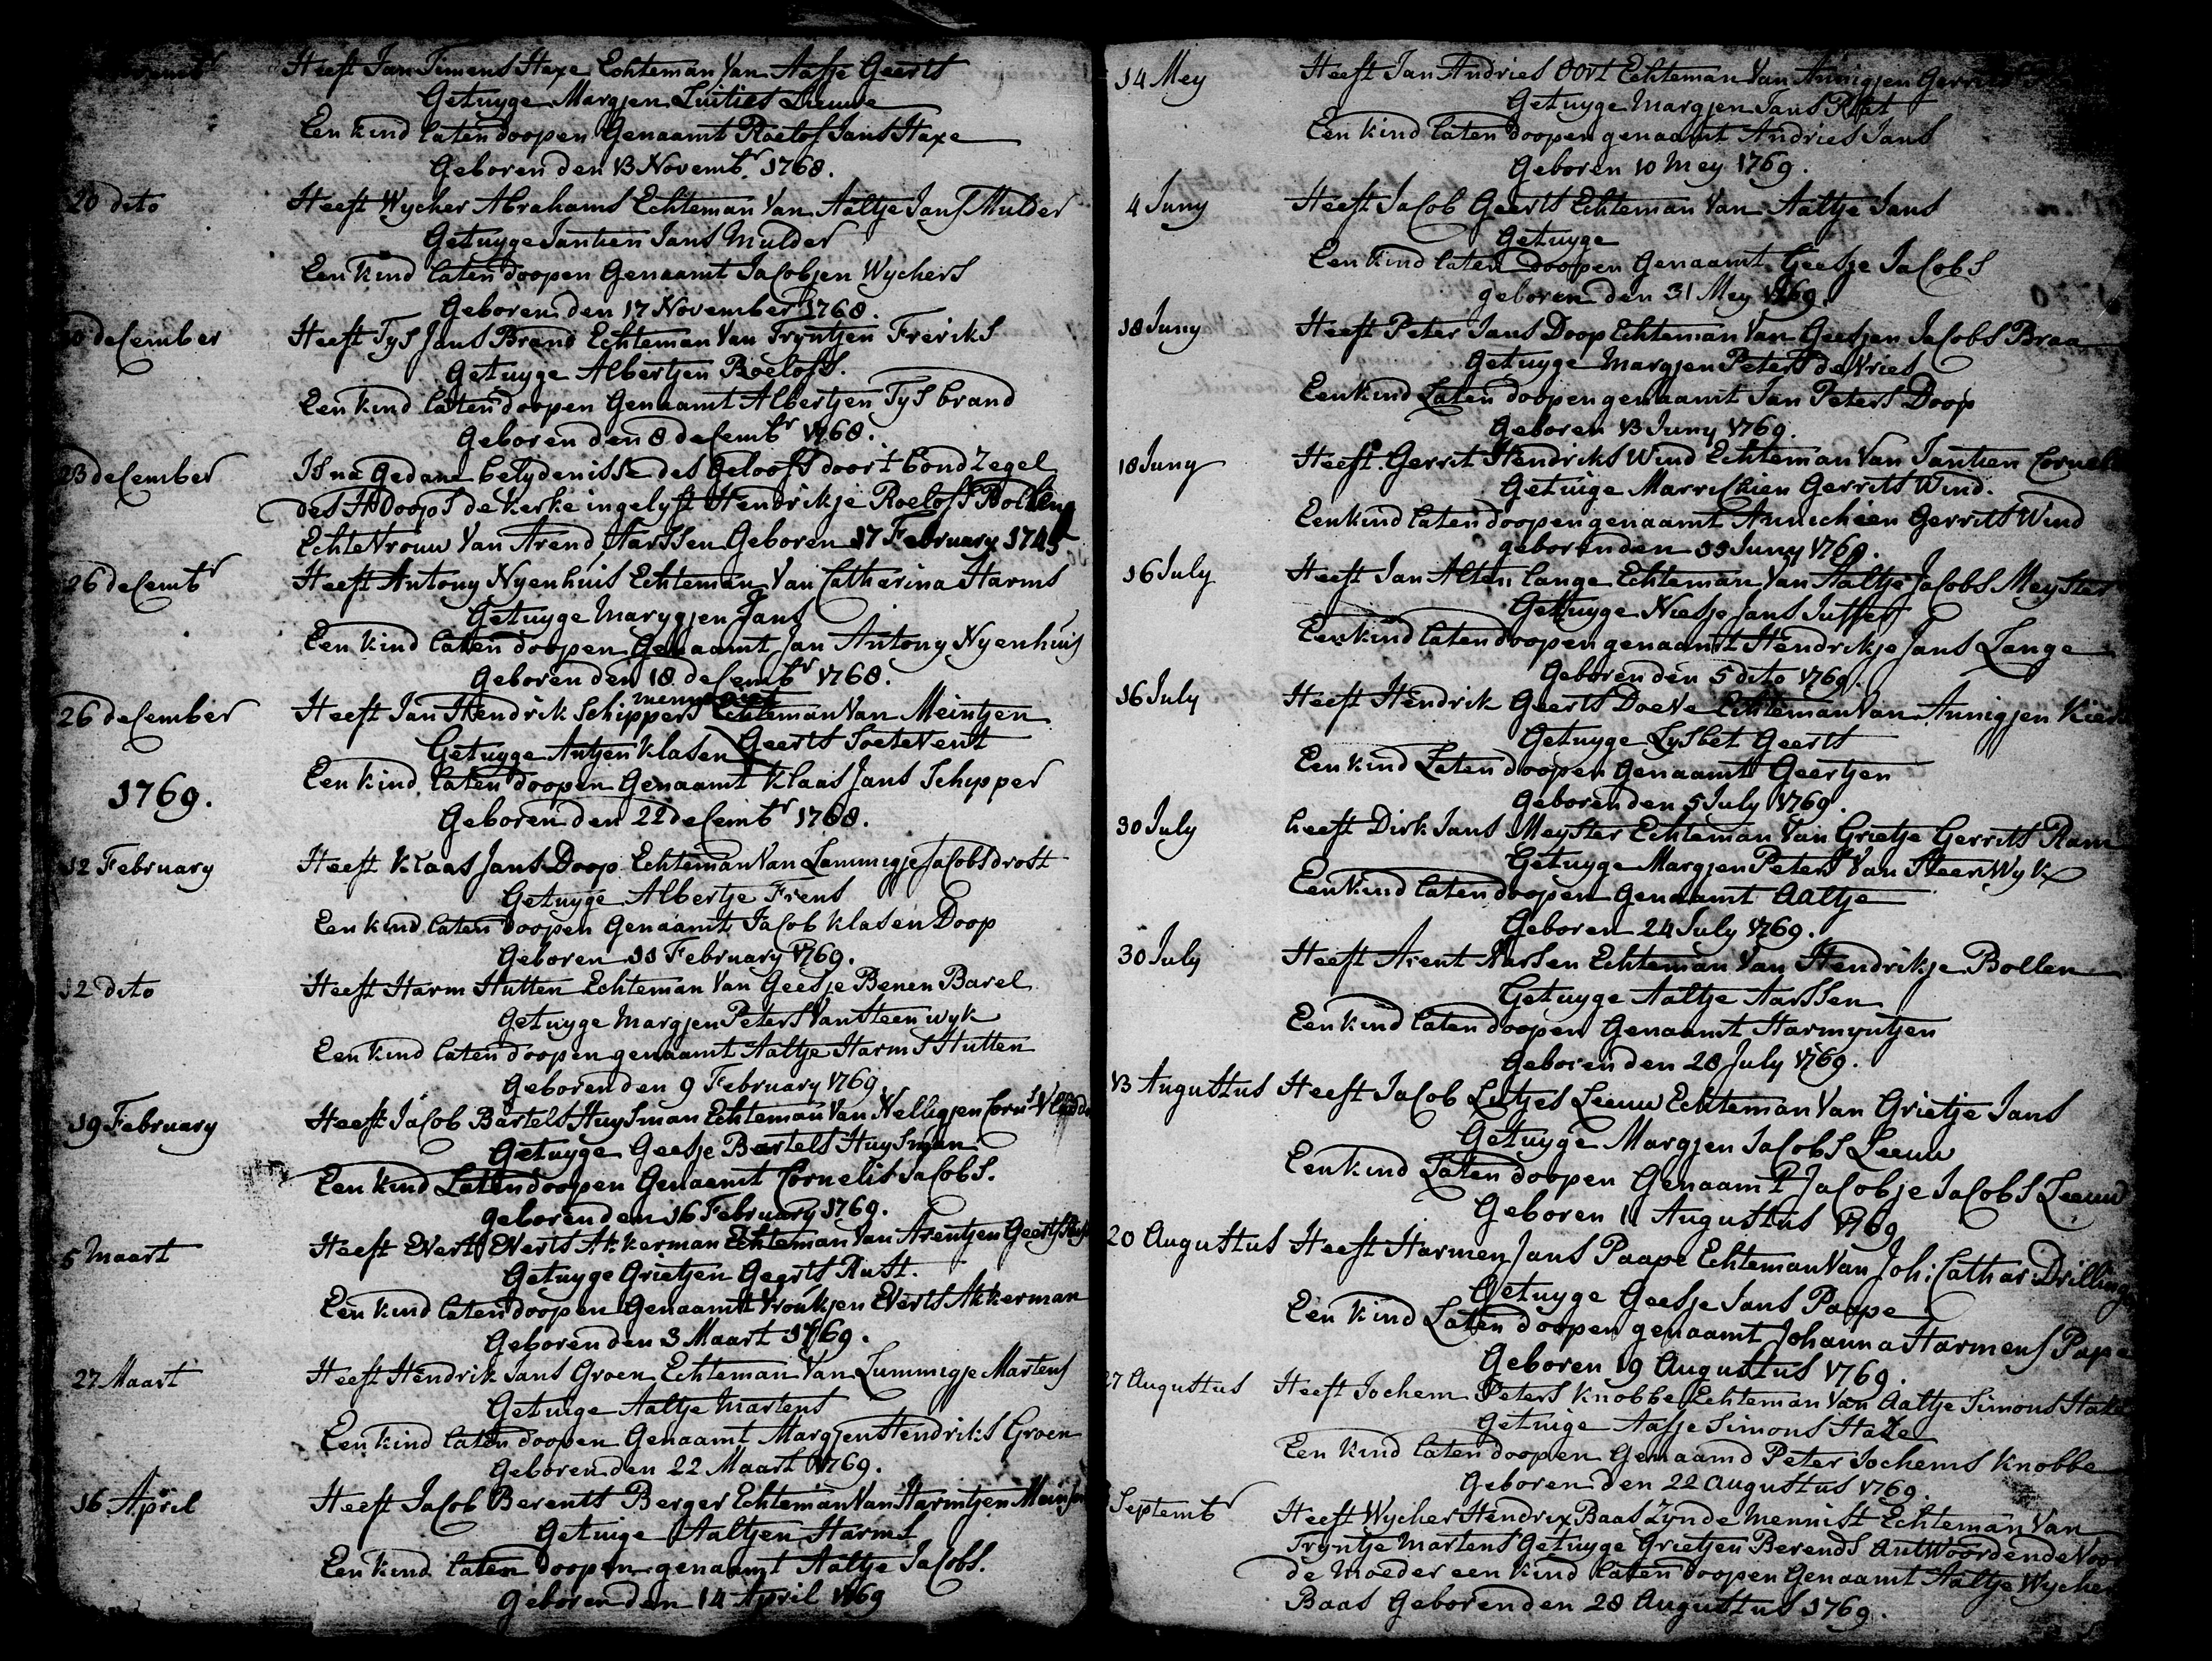 Heeft Jan Timens Haxe Echteman Van Aafje Geerts
Getuyge Margjen Luities Leeuwe
Een kind laten doopen Genaamt Roelof Jans Haxe
Geboren den 13 Novembr. 1768.
20 dito Heeft Wycher Abrahams Echteman Van Aaltje Jans Mulder
Getuyge Jantien Jans Mulder
Een kind laten doopen Genaamt Jacobjen Wychers
Geboren den 17 November 1768.
december Heeft Tys Jans Brand Echteman Van Tryntjen Freriks
Getuyge Albertjen Roelofs.
Een kind laten doopen Genaamt Albertjen Tys brand
Geboren den 8 decembr 1768.
23 december Is na gedane belydenisse des Geloofs door t bondzegel
des H Doops de kerke ingelyft Hendrikje Roelofs Bollen
Echte Vrouw Van Arend Aarssen Geboren 17 February 1745
26 decembr Heeft Antony Nyenhuis Echteman Van Catharina Harms
Getuyge Marygjen Jans
Een kind laten doopen Genaamt Jan Antony Nyenhuis
Geboren den 18 decembr 1768.
mennoniet
26 december Heeft Jan Hendrik Schippers Echteman Van Meintjen
Getuyge Antjen Klasen Geerts Soetevent
Een kind laten doopen Genaamt Klaas Jans Schipper
1769.
Geboren den 22 decembr 1768.
12 February Heeft Klaas Jans Doop Echteman Van Lammigje Jacobs drost
Getuyge Albertje Frens
Een kind laten doopen Genaamt Jacob Klasen Doop
Geboren 11 February 1769.
12 dito Heeft Harm Hutten Echteman Van Geesje Benen Barel
Getuyge Margjen Peters Van Steenwyk
Een kind laten doopen genaamt Aaltje Harms Hutten
Geboren den 9 February 1769
19 February Heeft Jacob Bartels Huysman Echteman Van Nelligjen Corns
Getuyge Geesje Bartels Huysman
Een kind Laten doopen Genaamt Cornelis Jacobs.
geboren den 16 February 1769.
5 Maart Heeft Evert Everts Akkerman Echteman Van Arentjen Geerts
Getuyge Grietjen Geerts Rust.
Een kind laten doopen Genaamt Vroukjen Everts Akkerman
Geboren den 3 Maart 1769.
27 Maart Heeft Hendrik Jans Groen Echteman Van Lummigje Martens
Getuige Aaltje Martens
Een kind laten doopen Genaamt Margjen Hendriks Groen
Geboren den 22 Maart 1769.
16 April Heeft Jacob Berents Berger Echteman Van Harmtjen
Getuige Aaltjen Harms
Een kind laten doopen genaamt Aaltje Jacobs.
Geboren den 14 April 1769
14 Mey Heeft Jan Andries Oort Echteman Van Annigjen
Getuyge Margjen Jans
Een kind laten doopen genaamt Andries Jans
Geboren 10 Mey 1769.
4 Juny Heeft Jacob Geerts Echteman Van Aaltje Jans
Getuyge
Een kind laten doopen Genaamt Geesje Jacobs
geboren den 31 Mey 1769.
18 Juny Heeft Peter Jans Doop Echteman Van Geesjen Jacobs Braa
Getuyge Margjen Peters de Vries
Een kind Laten doopen genaamt Jan Peters Doop
Geboren 13 Juny 1769.
18 Juny Heeft Gerrit Hendriks Wind Echteman Van Jantien
Getuige Marrichien Gerrits Wind.
Een kind laten doopen genaamt Annechien Gerrits Wind
geboren den 11 Juny 1769.
16 July Heeft Jan Alten Lange Echteman Van Aaltje Jacobs Meyster
Getuyge Niesje Jans Juffer
Een kind laten doopen genaamt Hendrikje Jans Lange
Geboren den 5 dito 1769.
16 July Heeft Hendrik Geerts Doeve Echteman Van Annigjen
Getuyge Lysbet Geerts
Een kind Laten doopen Genaamt Geertjen
Geboren den 5 July 1769.
30 July heeft Dirk Jans Meyster Echteman Van Grietje Gerrits Ram
Getuyge Margjen Peters Van Steenwyk
Een kind laten doopen Genaamt Aaltje
Geboren 24 July 1769.
30 July Heeft Arent Aarsen Echteman Van Hendrikje Bollen
Getuyge Aaltje Aarssen
Een kind laten doopen Genaamt Harmyntjen
Geboren den 28 July 1769.
13 Augustus Heeft Jacob Lutjes Leeuw Echteman Van Grietje Jans
Getuyge Margjen Jacobs Leeuw
Een kind Laten doopen Genaamt Jacobje Jacobs Leeuw
Geboren 11 Augustus 1769
20 Augustus Heeft Harmen Jans Paape Echteman Van Joh: Cathar: Drilling
Getuyge Geesje Jans Paape
Een kind Laten doopen genaamt Johanna Harmens Pape
Geboren 19 Augustus 1769.
27 Augustus Heeft Jochem Peters Knobbe Echteman Van Aaltje Simons
Getuige Aafje Simons
Een kind laten doopen Genaamd Peter Jochems Knobbe
Geboren den 22 Augustus 1769.
Septembr Heeft Wycher Hendrix Baas Zynde Mennist Echteman Van
Tryntje Martens Getuyge Grietjen Berends Antwoordende Voor
de Moeder een kind laten doopen Genaamt Aaltje Wychers
Baas Geboren den 28 Augustus 1769.